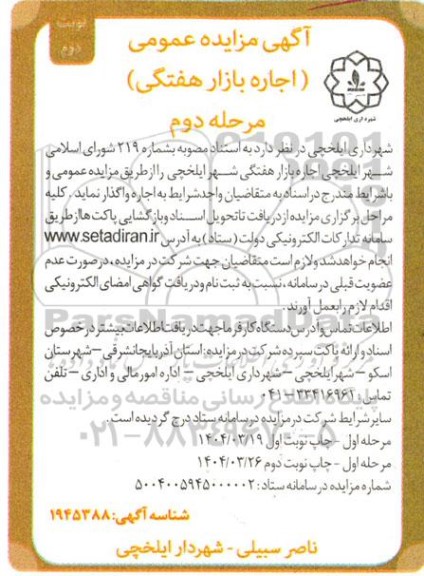 نوبت
دوم
آگهی مزایده عمومی
( اجاره بازار هفتگی )
مرحله دوم
شهرداری ایلخچی
شهرداری ایلخچی در نظر دارد به استناد مصوبه بشماره ۲۱۹ شورای اسلامی
شهر ایلخچی اجاره بازار هفتگی شهر ایلخچی را از طریق مزایده عمومی و
با شرایط مندرج در اسناد به متقاضیان واجد شرایط به اجاره واگذار نماید . کلیه
مراحل برگزاری مزایده از دریافت تا تحویل اسناد و بازگشایی پاکت ها از طریق
سامانه تدارکات الکترونیکی دولت (ستاد) به آدرس www.setadiran.ir
انجام خواهد شد و لازم است متقاضیان جهت شرکت در مزایده ، در صورت عدم
عضویت قبلی در سامانه ، نسبت به ثبت نام و دریافت گواهی امضای الکترونیکی
اقدام لازم را بعمل آورند .
اطلاعات تماس و آدرس دستگاه کارفرما جهت دریافت اطلاعات بیشتر در خصوص
اسناد و ارائه پاکت سپرده شرکت در مزایده : استان آذربایجانشرقی – شهرستان
اسکو – شهر ایلخچی – شهرداری ایلخچی – اداره امور مالی و اداری – تلفن
تماس ۳۳۴۱۶۹۶۱-۰۴۱
سایر شرایط شرکت در مزایده در سامانه ستاد درج گردیده است .
مرحله اول - چاپ نوبت اول ۱۴۰۴/۰۳/۱۹
مرحله اول - چاپ نوبت دوم ۱۴۰۴/۰۳/۲۶
شماره مزایده در سامانه ستاد : ۵۰۰۴۰۰۵۹۴۵۰۰۰۰۰۲
شناسه آگهی: ۱۹۴۵۳۸۸
ناصر سبیلی - شهردار ایلخچی
ParsNamadData
پایگاه اطلاع رسانی مناقصه و مزایده
۰۲۱-۸۸۳۴۹۶۷۰-۵